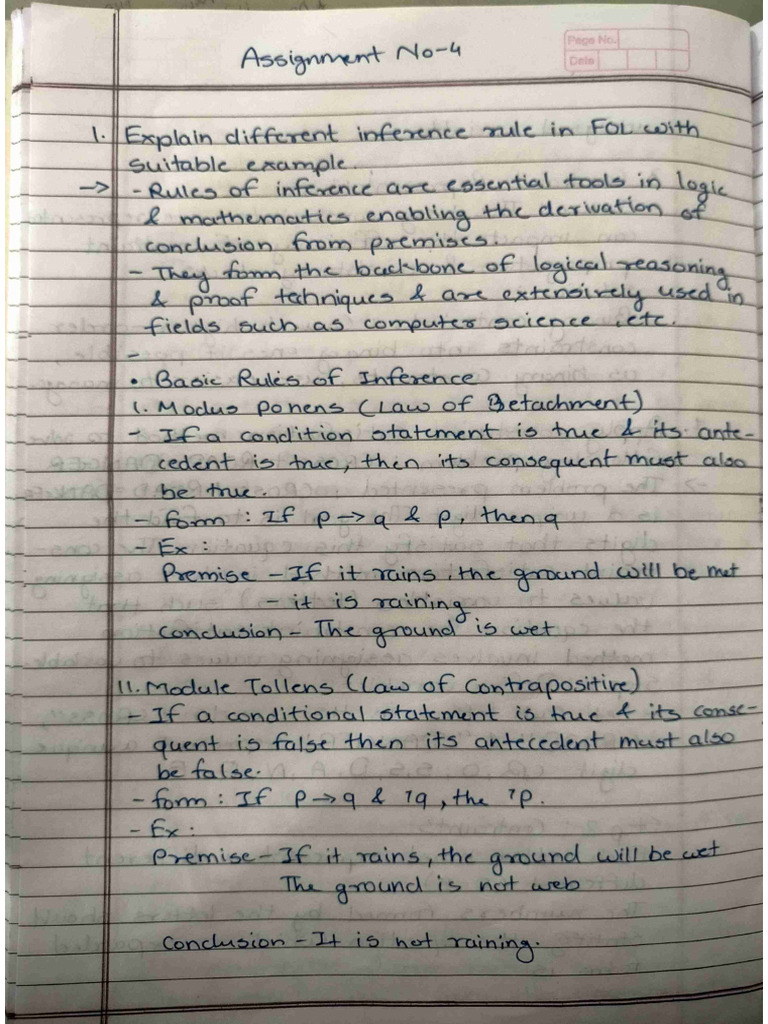 Assignment No-4
Page No.
Date
1. Explain different inference rule in FOL with
suitable example.
→ - Rules of inference are essential tools in logic
& mathematics enabling the derivation of
conclusion from premises.
- They form the backbone of logical reasoning
& proof techniques & are extensively used in
fields such as computer science, etc.
-
• Basic Rules of Inference
1. Modus Ponens (Law of Detachment)
- If a condition statement is true & its ante-
cedent is true, then its consequent must also
be true.
- form : If p → q & p, then q
- Ex :
Premise - If it rains, the ground will be met
- it is raining
Conclusion - The ground is wet
11. Module Tollens (Law of Contrapositive)
- If a conditional statement is true & its conse-
quent is false then its antecedent must also
be false.
- form : If p → q & ㄱq, the ㄱp.
- Ex :
Premise - If it rains, the ground will be wet
The ground is not web
Conclusion - It is not raining.